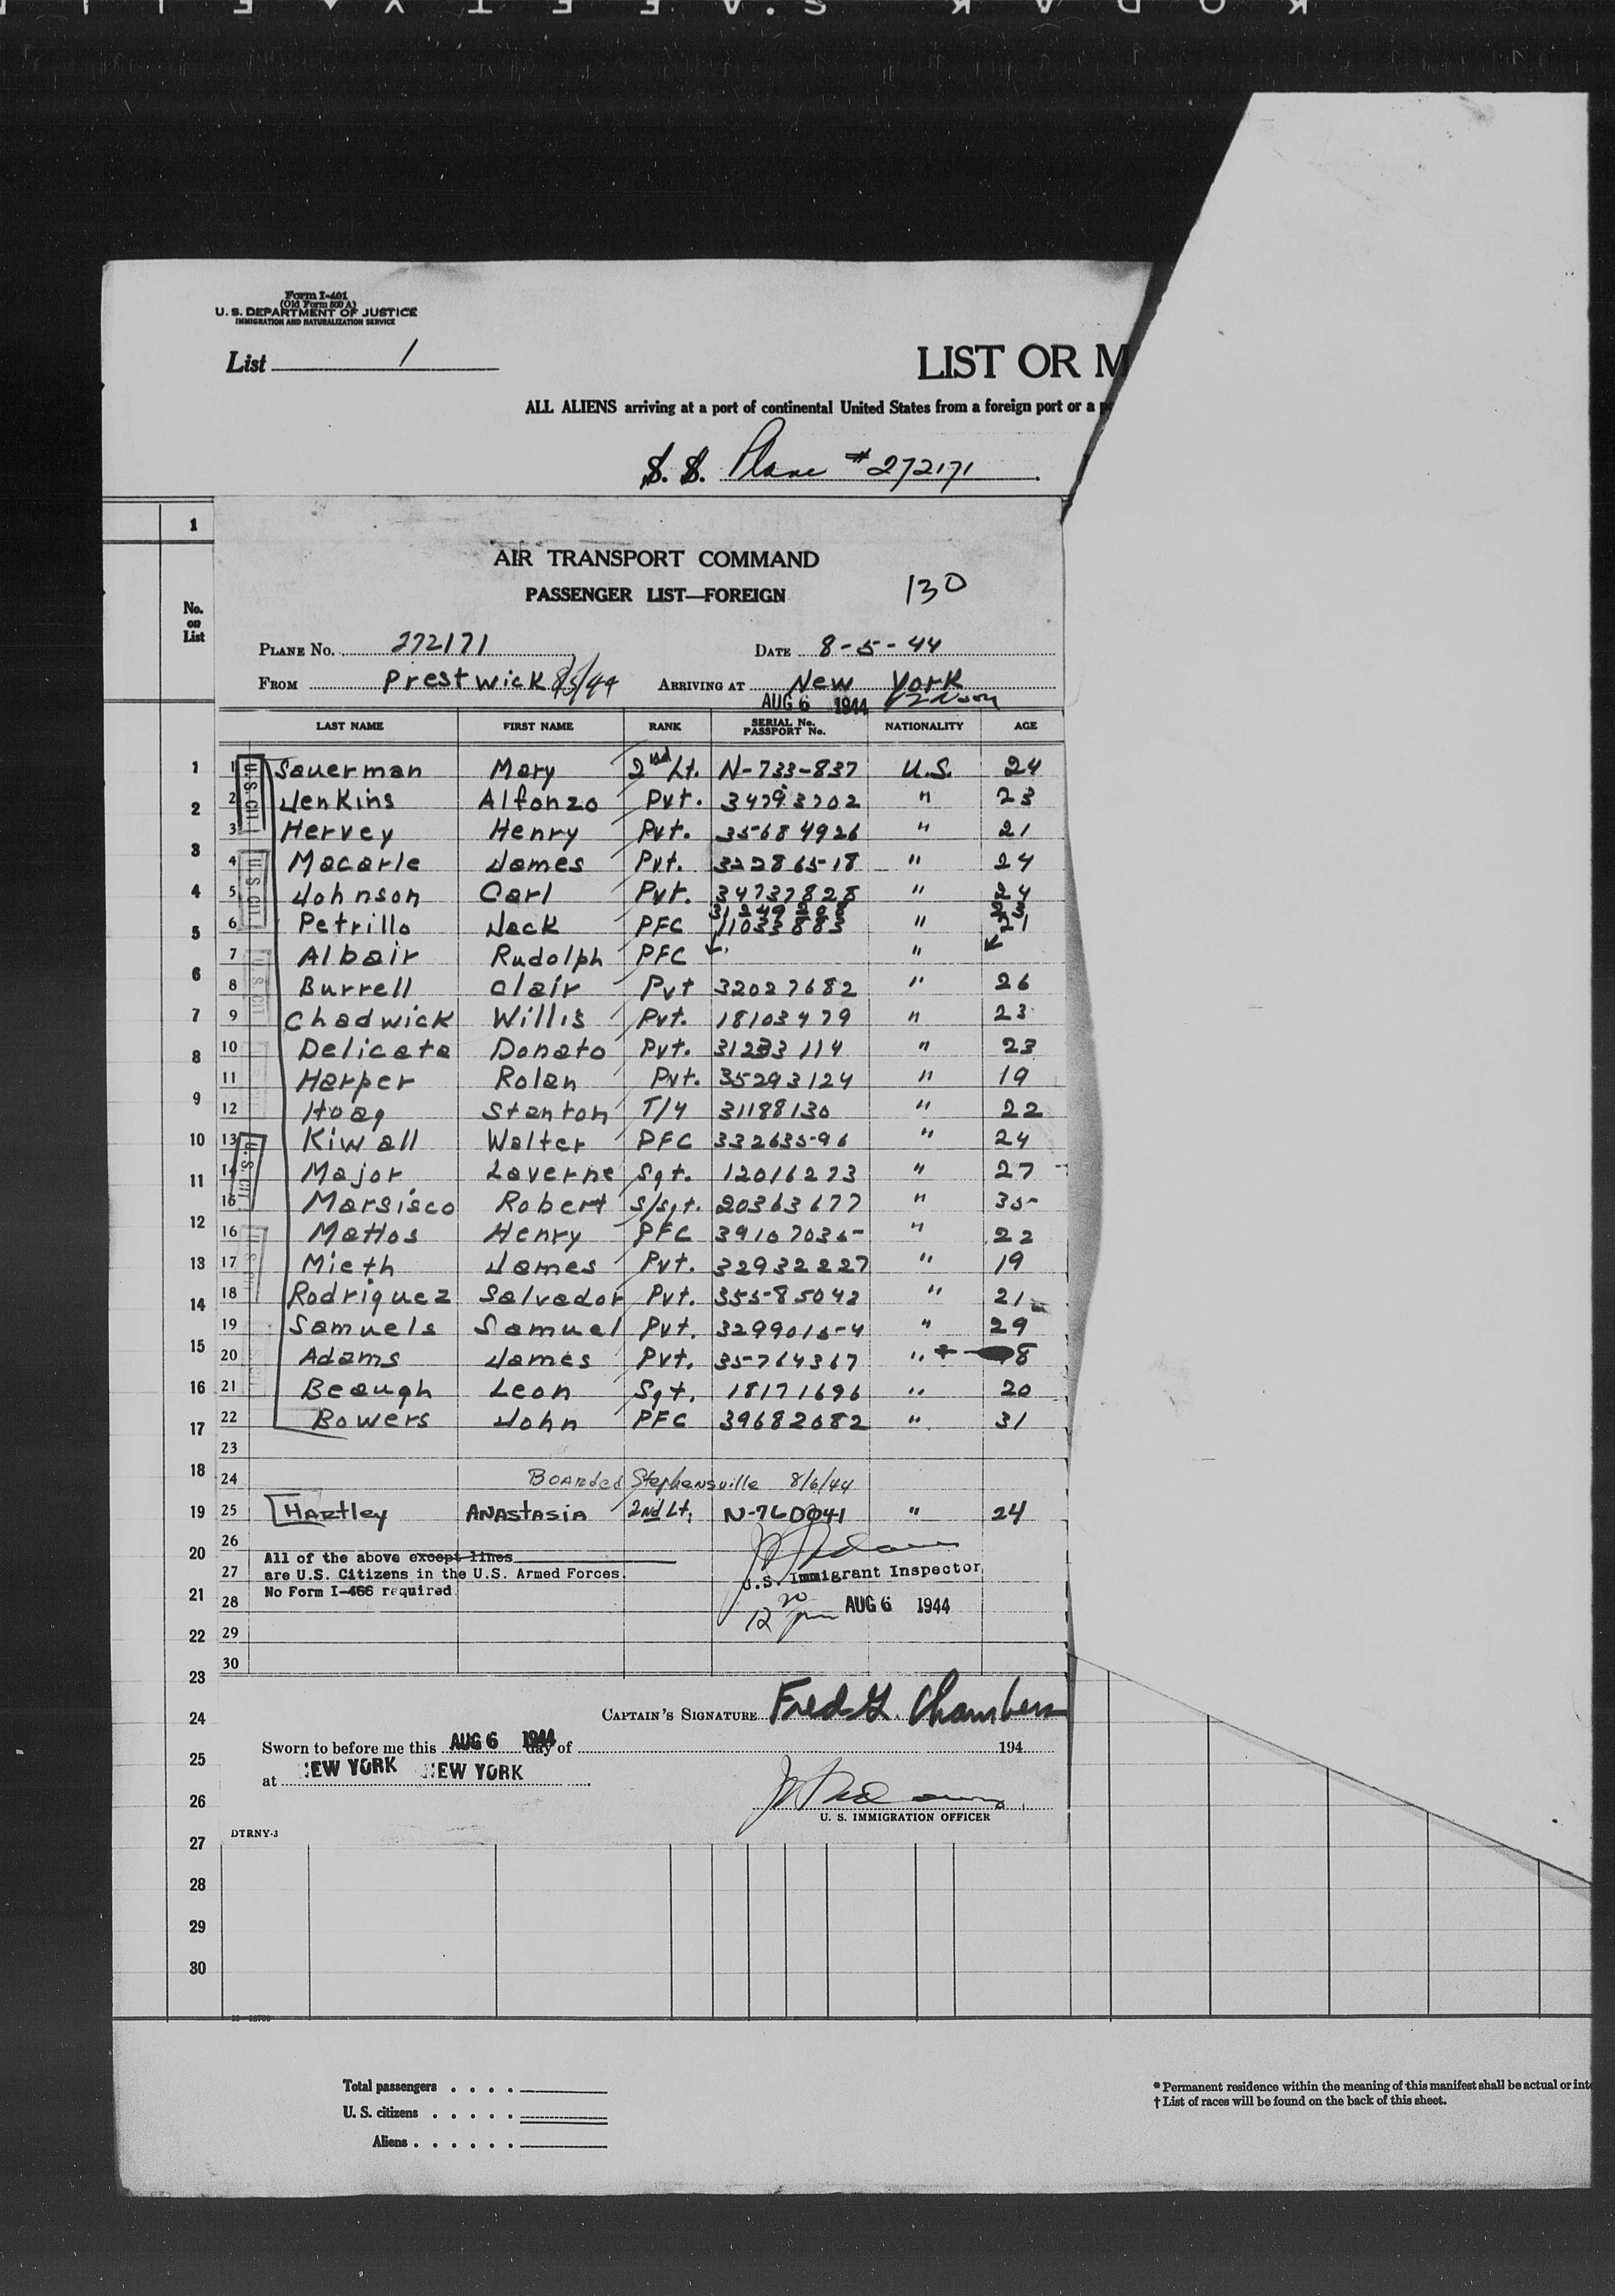 KODAK S.AFETY FIL
Form I-401
(Old Form 500 A)
U. S. DEPARTMENT OF JUSTICE
IMMIGRATION AND NATURALIZATION SERVICE
List 1
LIST OR M
ALL ALIENS arriving at a port of continental United States from a foreign port or a p
S. S. Plane #272171
1
AIR TRANSPORT COMMAND
PASSENGER LIST—FOREIGN 130
No. on List
PLANE No. 272171 DATE 8-5-44
FROM Prestwick 8/5/44 ARRIVING AT New York
AUG 6 1944
LAST NAME FIRST NAME RANK SERIAL No. PASSPORT No. NATIONALITY AGE
1 1 Sauerman Mary 2nd Lt. N-733-837 U.S. 24
2 2 Jenkins Alfonzo Pvt. 34793702 " 23
3 Hervey Henry Pvt. 35684926 " 21
3 4 Macarle James Pvt. 32286518 " 24
4 5 Johnson Carl Pvt. 34737828 " 24
31249208 23
5 6 Petrillo Jack PFC 11033883 " 21
7 Albair Rudolph PFC "
6 8 Burrell Clair Pvt 32027682 " 26
7 9 Chadwick Willis Pvt. 18103479 " 23
8 10 Delicata Donato Pvt. 31233114 " 23
11 Harper Rolan Pvt. 35293124 " 19
9 12 Hoag Stanton T/4 31188130 " 22
10 13 Kiwall Walter PFC 33263596 " 24
11 14 Major Laverne Sgt. 12016273 " 27
15 Marsisco Robert S/Sgt. 20363677 " 35
12 16 Mattos Henry PFC 39107035 " 22
13 17 Mieth James Pvt. 32932227 " 19
14 18 Rodriguez Salvador Pvt. 35585042 " 21
19 Samuels Samuel Pvt. 32990154 " 29
15 20 Adams James Pvt. 35764367 " 8
16 21 Beaugh Leon Sgt. 18171696 " 20
17 22 Bowers John PFC 39682082 " 31
23
18 24 Boarded Stephensville 8/6/44
19 25 Hartley Anastasia 2nd Lt. N-760041 " 24
20 26
All of the above except lines
27 are U.S. Citizens in the U.S. Armed Forces. U.S. Immigrant Inspector
21 No Form I-466 required
28 12 20 pm AUG 6 1944
22 29
30
23
24 CAPTAIN'S SIGNATURE Fred G. Chambers
Sworn to before me this AUG 6 1944 day of 194
25
at NEW YORK NEW YORK
26 U. S. IMMIGRATION OFFICER
DTRNY-3
27
28
29
30
Total passengers . . . .
U. S. citizens . . . . .
Aliens . . . . . .
* Permanent residence within the meaning of this manifest shall be actual or inte
† List of races will be found on the back of this sheet.